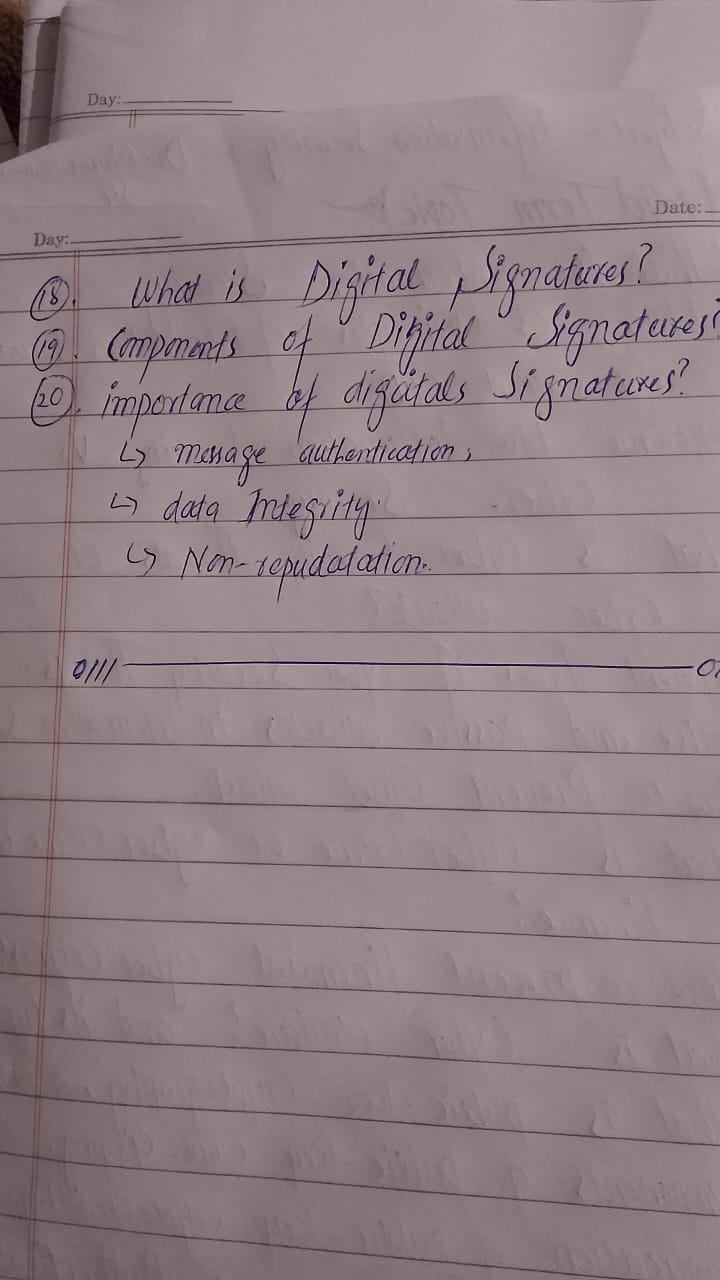 Day:
Date:
Day:
(18). What is Digital Signatures?
(19). Components of Digital Signatures?
(20). importance of digitals Signatures?
↳ message authentication,
↳ data Integrity.
↳ Non-repudatation..